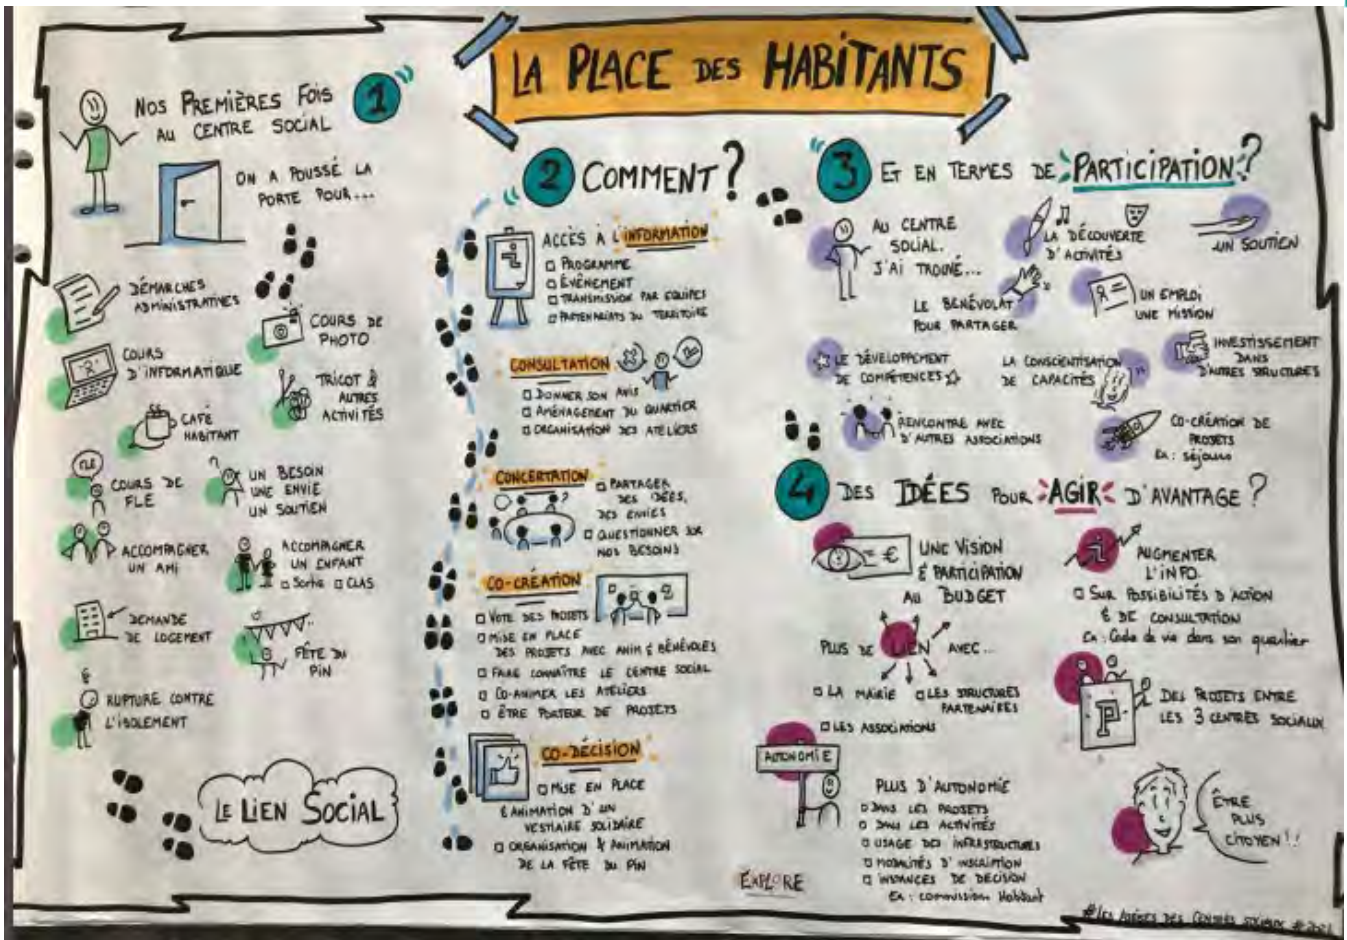 LA PLACE DES HABITANTS
NOS PREMIÈRES FOIS
AU CENTRE SOCIAL
1
ON A POUSSÉ LA
PORTE POUR...
DÉMARCHES
ADMINISTRATIVES
COURS DE
PHOTO
COURS
D'INFORMATIQUE
TRICOT &
AUTRES
ACTIVITÉS
CAFÉ
HABITANT
FLE
COURS DE
FLE
UN BESOIN
UNE ENVIE
UN SOUTIEN
ACCOMPAGNER
UN AMI
ACCOMPAGNER
UN ENFANT
Sortie CLAS
DEMANDE
DE LOGEMENT
FÊTE DU
PIN
RUPTURE CONTRE
L'ISOLEMENT
LE LIEN SOCIAL
2 COMMENT ?
ACCÈS À L'INFORMATION
PROGRAMME
ÉVÉNEMENT
TRANSMISSION PAR EQUIPES
PARTENARIATS DU TERRITOIRE
CONSULTATION
DONNER SON AVIS
AMÉNAGEMENT DU QUARTIER
ORGANISATION DES ATELIERS
CONCERTATION
PARTAGER
DES IDÉES,
DES ENVIES
QUESTIONNER SUR
NOS BESOINS
CO-CRÉATION
VOTE DES PROJETS
MISE EN PLACE
DES PROJETS AVEC ANIM & BÉNÉVOLES
FAIRE CONNAÎTRE LE CENTRE SOCIAL
CO-ANIMER LES ATELIERS
ÊTRE PORTEUR DE PROJETS
CO-DÉCISION
MISE EN PLACE
& ANIMATION D'UN
VESTIAIRE SOLIDAIRE
ORGANISATION & ANIMATION
DE LA FÊTE DU PIN
3 ET EN TERMES DE PARTICIPATION ?
AU CENTRE
SOCIAL.
J'AI TROUVÉ...
LA DÉCOUVERTE
D'ACTIVITÉS
UN SOUTIEN
LE BENÉVOLAT
POUR PARTAGER
UN EMPLOI
UNE MISSION
LE DÉVELOPPEMENT
DE COMPÉTENCES
LA CONSCIENTISATION
DE CAPACITÉS
INVESTISSEMENT
DANS
D'AUTRES STRUCTURES
RENCONTRE AVEC
D'AUTRES ASSOCIATIONS
CO-CRÉATION DE
PROJETS
Ex : séjours
4 DES IDÉES POUR AGIR D'AVANTAGE ?
= €
UNE VISION
& PARTICIPATION
AU BUDGET
AUGMENTER
L'INFO.
SUR POSSIBILITÉS D'ACTION
& DE CONSULTATION
Ex : Code de vie dans son quartier
PLUS DE LIEN AVEC...
LA MAIRIE
LES STRUCTURES
PARTENAIRES
LES ASSOCIATIONS
P
DES PROJETS ENTRE
LES 3 CENTRES SOCIAUX
AUTONOMIE
PLUS D'AUTONOMIE
DANS LES PROJETS
DANS LES ACTIVITÉS
USAGE DES INFRASTRUCTURES
MODALITÉS D'INSCRIPTION
INSTANCES DE DÉCISION
Ex : commission Habitant
ÊTRE
PLUS
CITOYEN !!
EXPLORE
DES CENTRES SOCIAUX